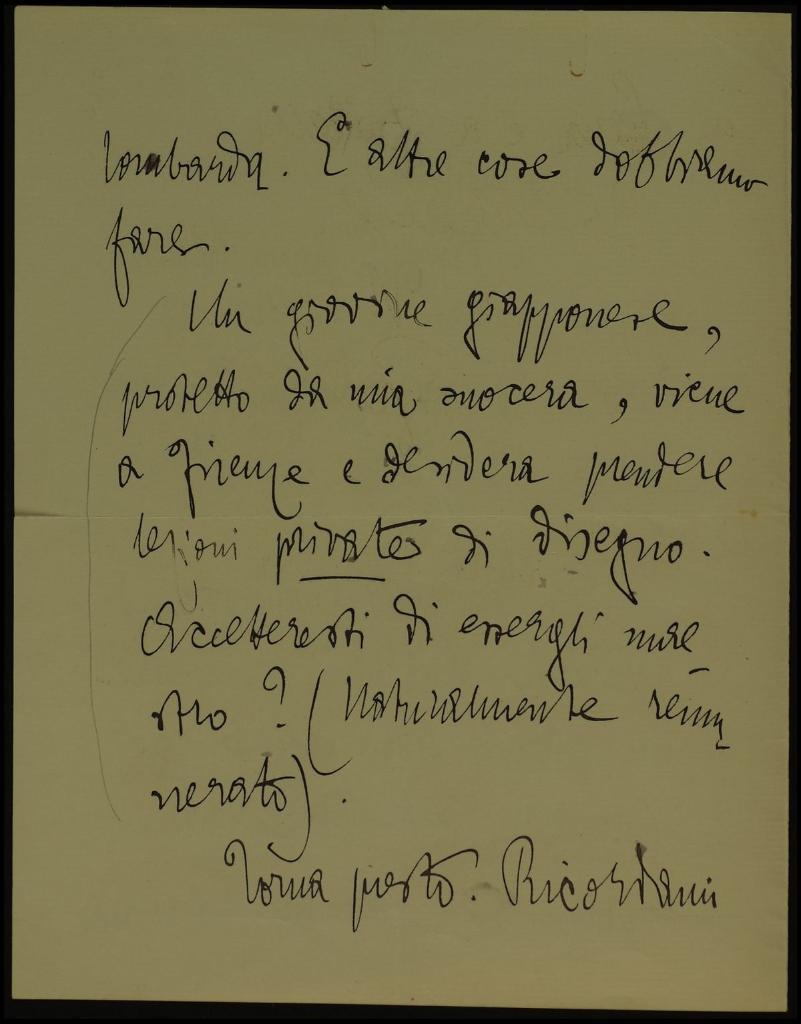 lombarda. E altre cose dobbiamo
fare.
Un giovine giapponese,
protetto da mia suocera, viene
a Firenze e desidera prendere
lezioni private di disegno.
Accetteresti di essergli mae
stro? (Naturalmente remu
nerato).
Torna presto. Ricordami